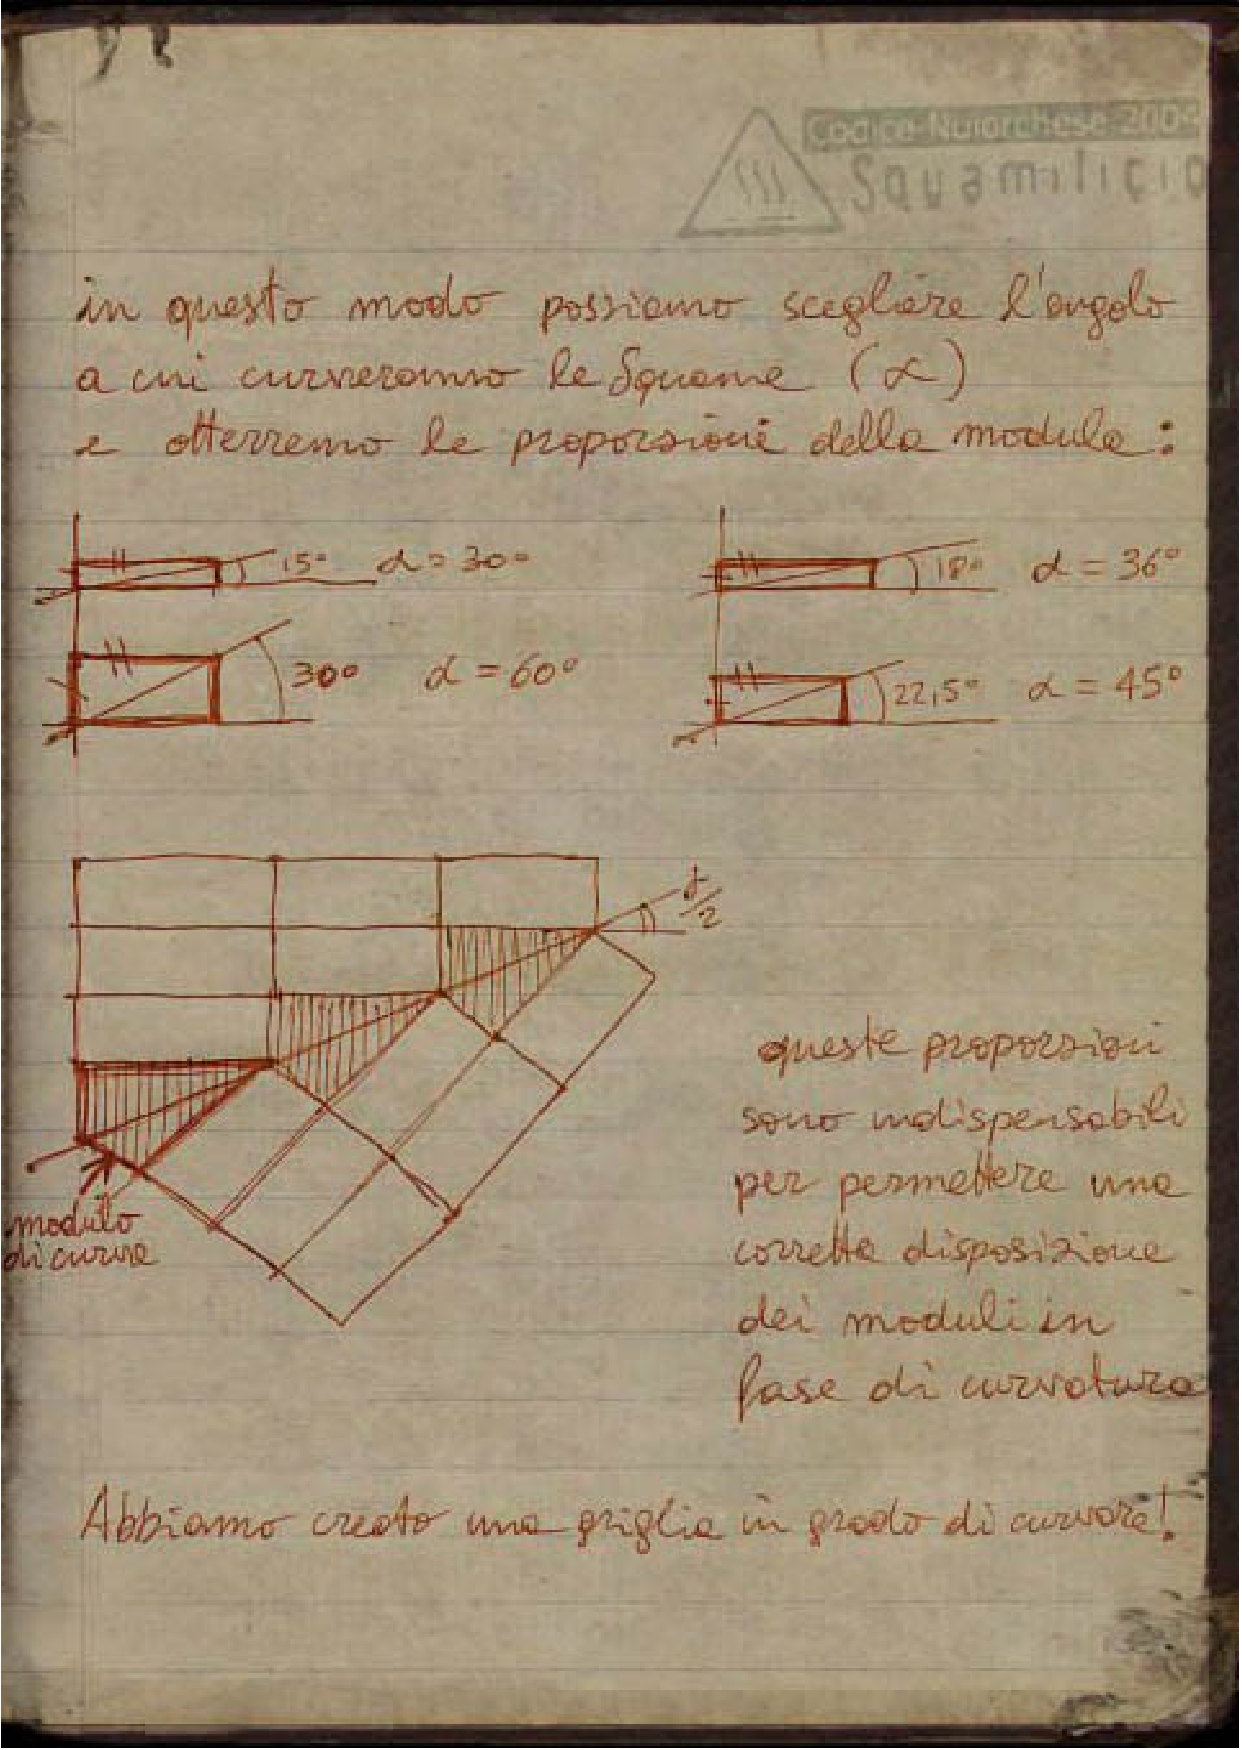 Codice Nuiarchese 2009
Squamilicio
in questo modo possiamo scegliere l'angolo
a cui curveranno le Squame (α)
e otterremo le proporzioni della modula:
15° α = 30°
18° α = 36°
30° α = 60°
22,5° α = 45°
α/2
modulo
di curva
queste proporzioni
sono indispensabili
per permettere una
corretta disposizione
dei moduli in
fase di curvatura
Abbiamo creato una griglia in grado di curvare!